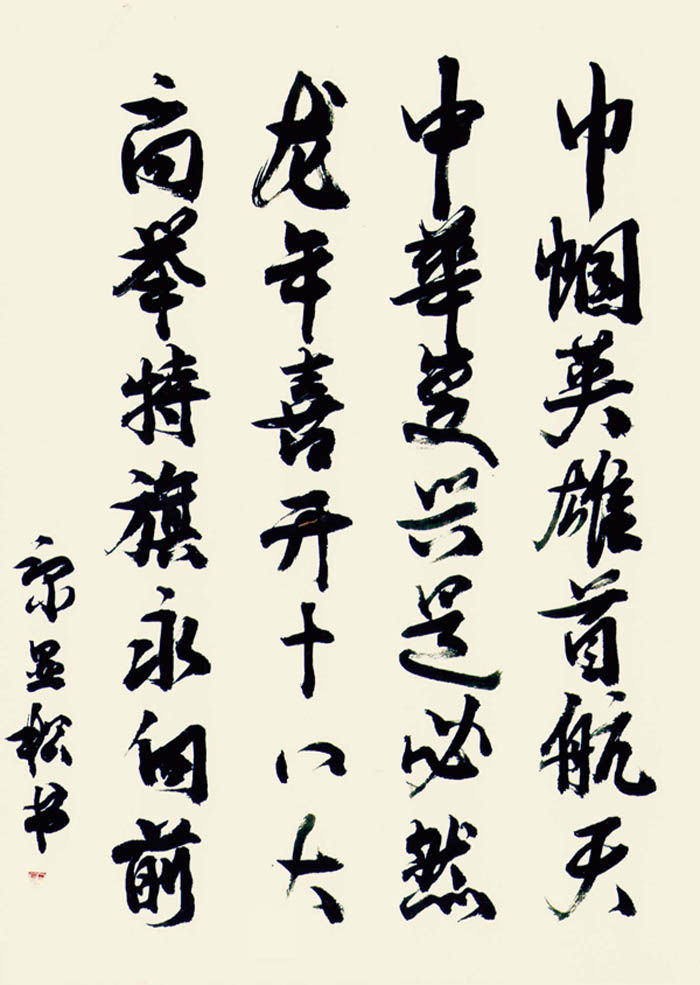 巾帼英雄首航天
中華复兴是必然
龙年喜开十八大
高举特旗永向前
宗显松书